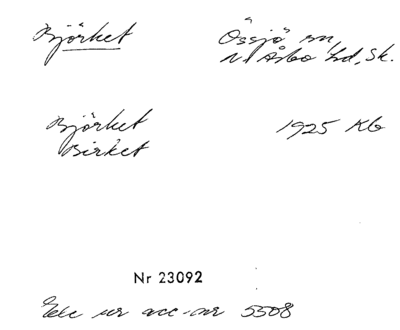 Björket Össjö sn,
N Åsbo hd, Sk.
Björket 1925 Kb
Birket
Nr 23092
Exc ur acc-nr 5508